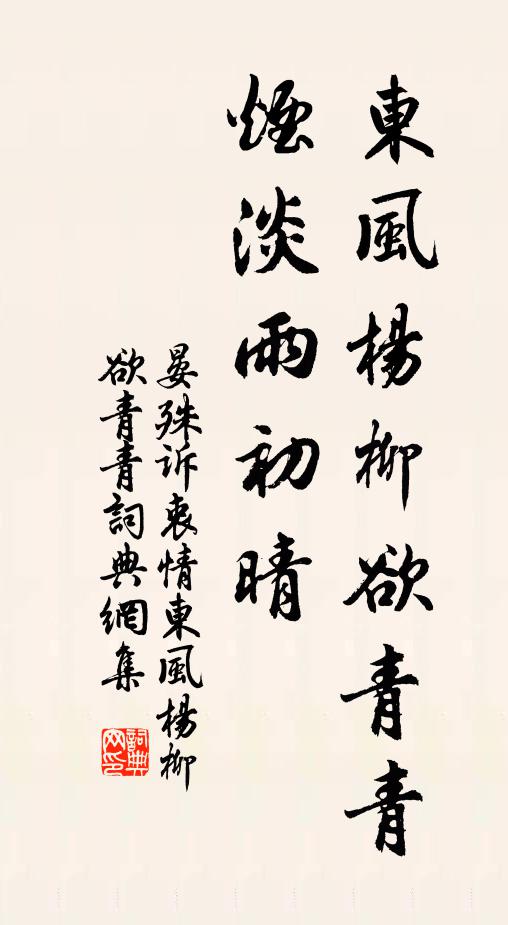 東風楊柳欲青青
煙淡雨初晴
晏殊訴衷情東風楊柳
欲青青詞典網集
詞典
网印